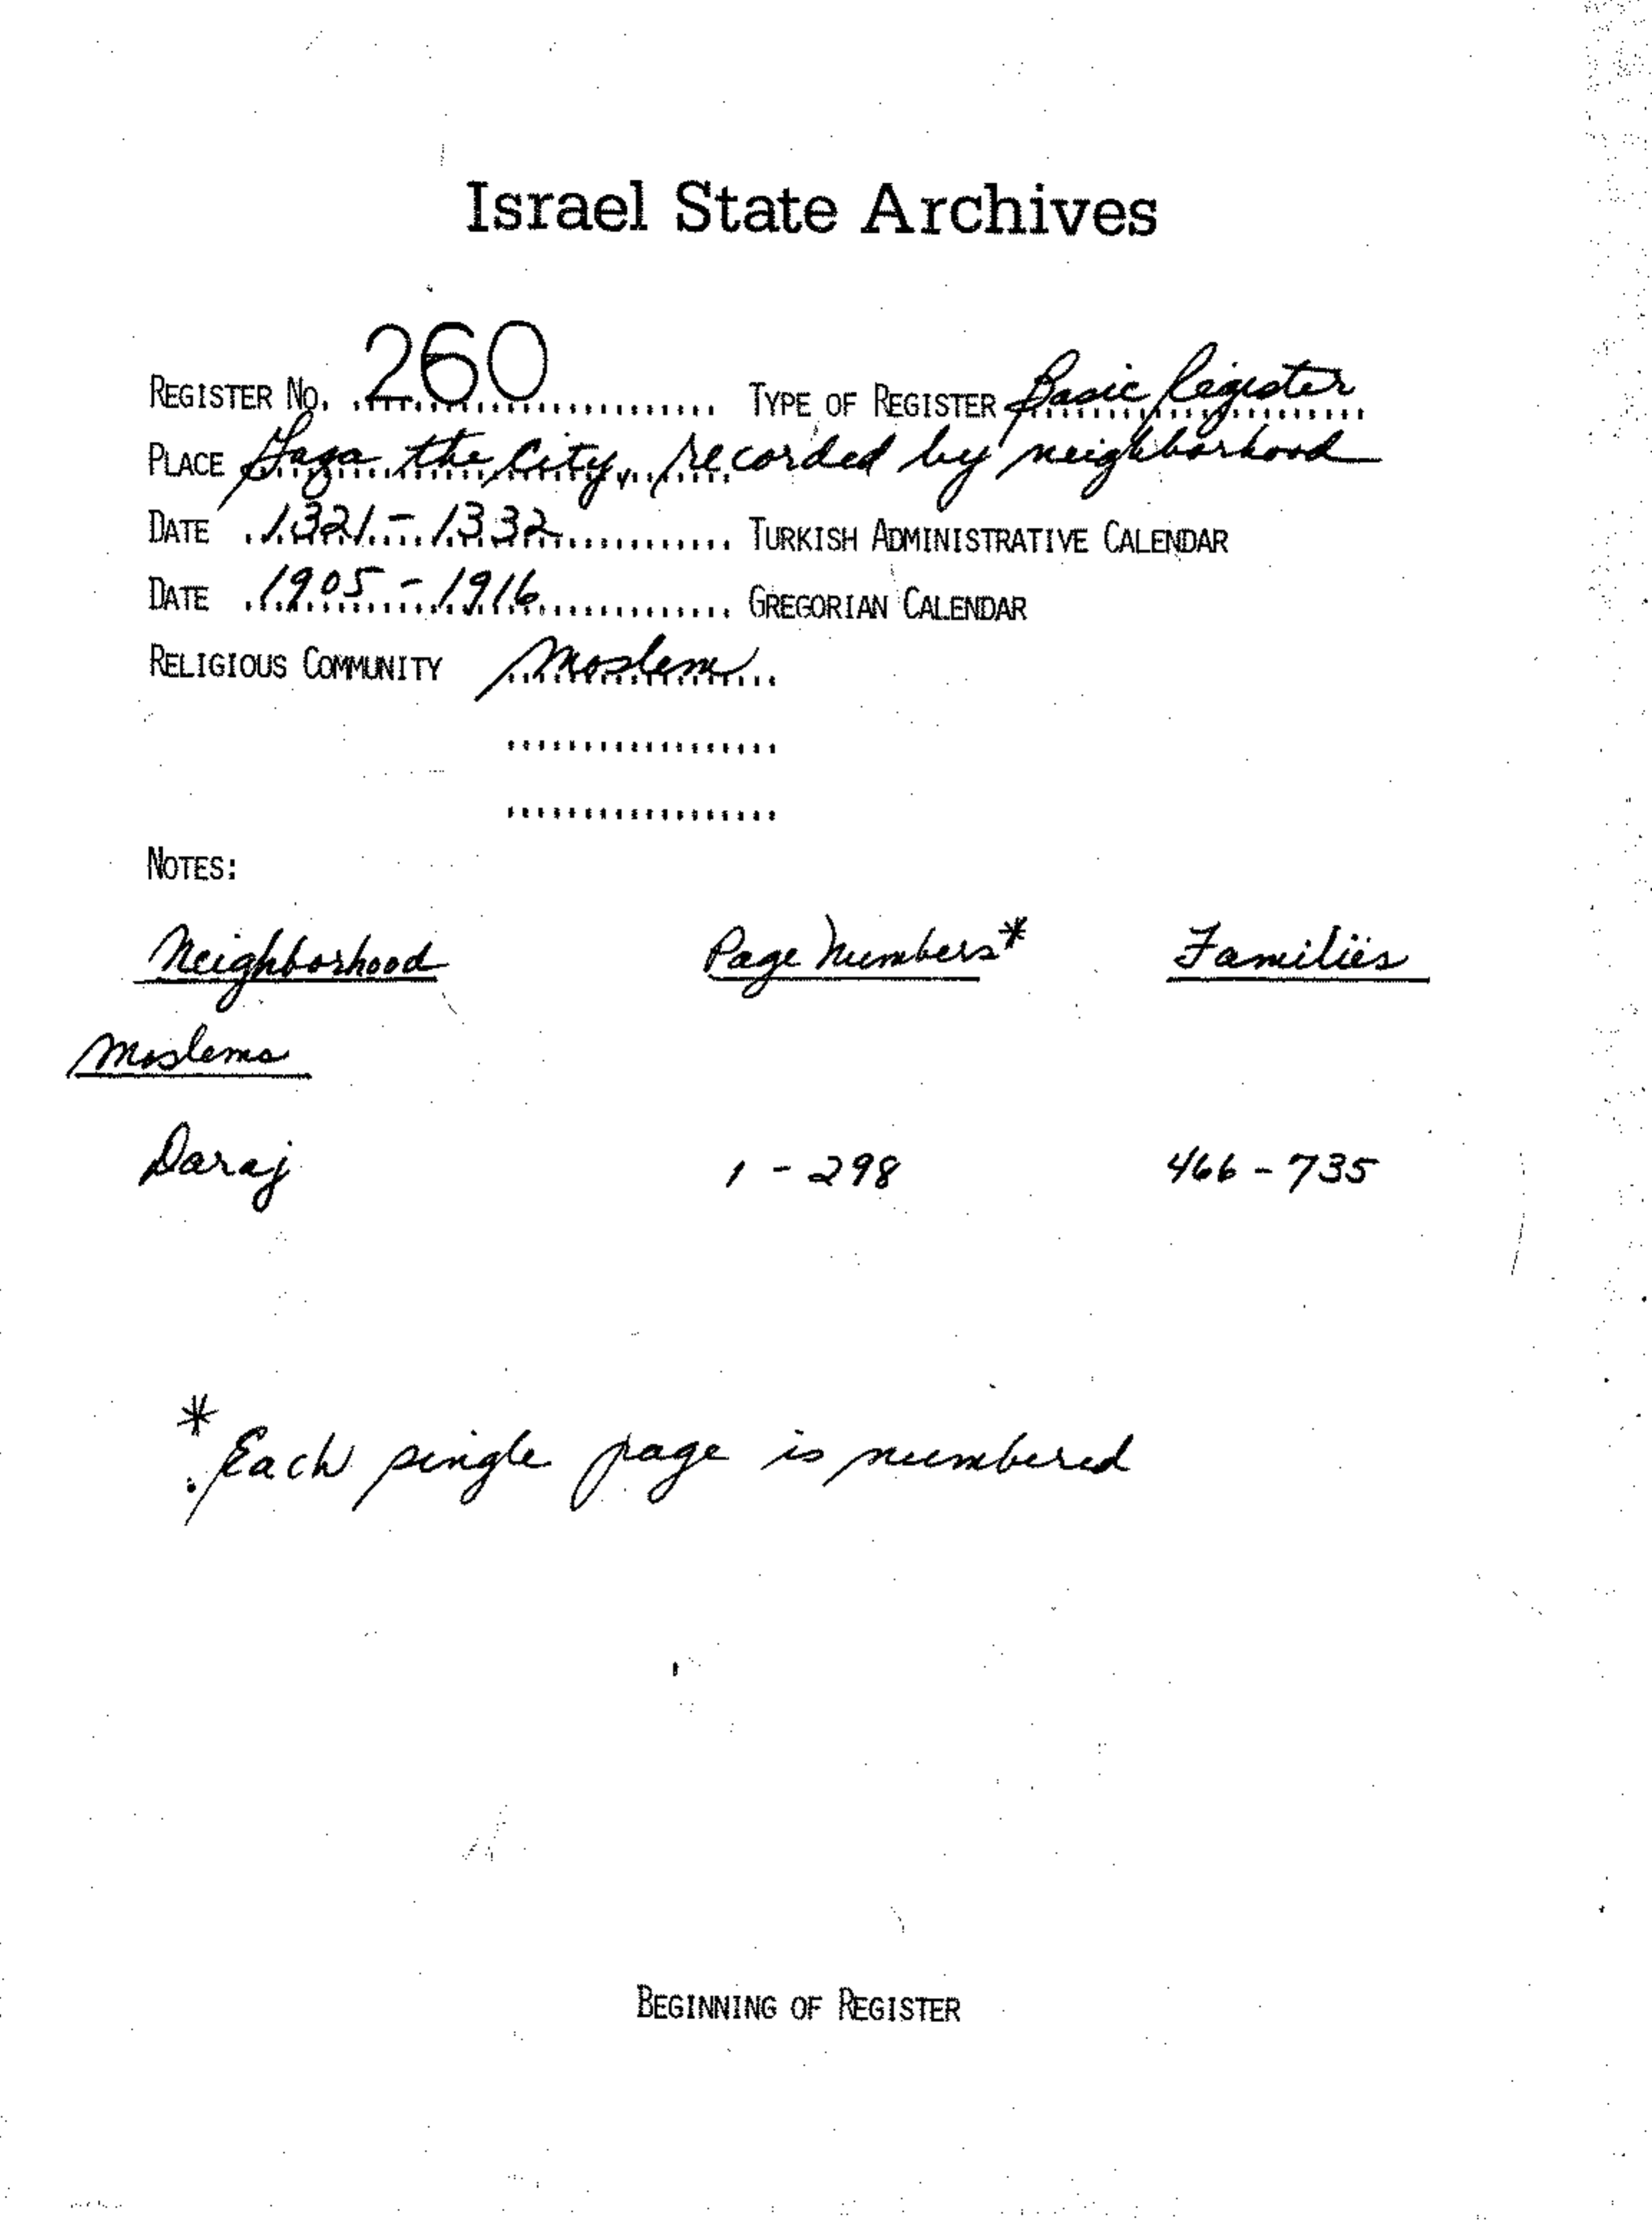 Israel State Archives
REGISTER NO. 260 TYPE OF REGISTER Basic Register
PLACE Gaza the City, recorded by neighborhood
DATE 1321 - 1332 TURKISH ADMINISTRATIVE CALENDAR
DATE 1905 - 1916 GREGORIAN CALENDAR
RELIGIOUS COMMUNITY Moslem
NOTES:
Neighborhood Page Numbers* Families
Moslems
Daraj 1 - 298 466 - 735
* Each single page is numbered
BEGINNING OF REGISTER